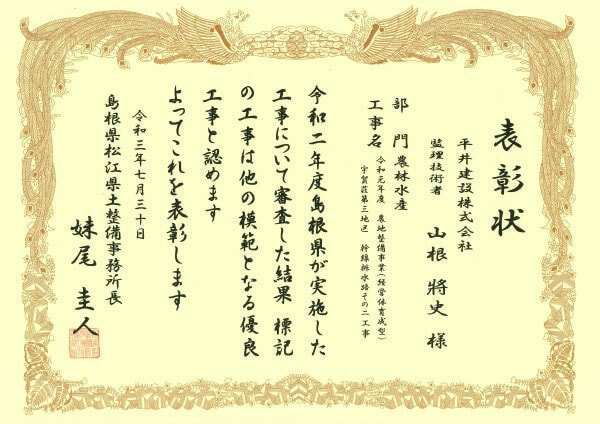 表彰状
平井建設株式会社
監理技術者 山根 將史 様
部門 農林水産
工事名 令和元年度 農地整備事業(経営体育成型)
宇賀荘第三地区 幹線排水路その二工事
令和二年度島根県が実施した
工事について審査した結果 標記
の工事は他の模範となる優良
工事と認めます
よってこれを表彰します
令和三年七月三十日
島根県松江県土整備事務所長
妹尾 圭人